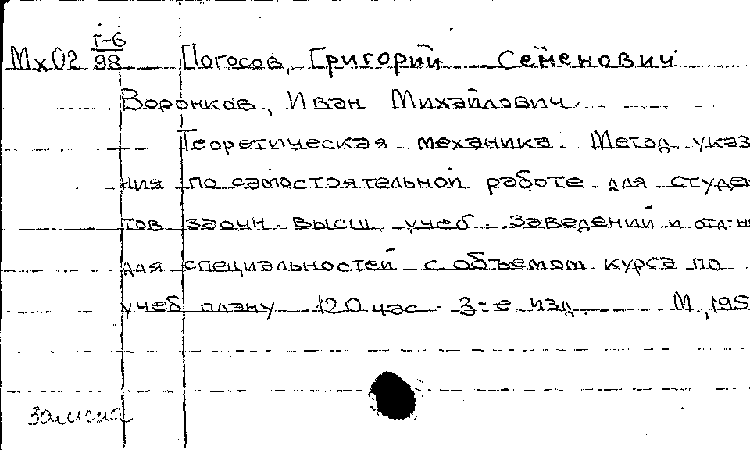 Г-6
Мх02 98 Погосов, Григорий Семенович
Воронков, Иван Михайлович
Теоретическая механика. Метод. указа
ния по самостоятельной работе для студе
тов заочн. высш. учеб. заведений и отд-н
для специальностей с объемом курса по
учеб плану 120 час. 3-е изд. М, 195